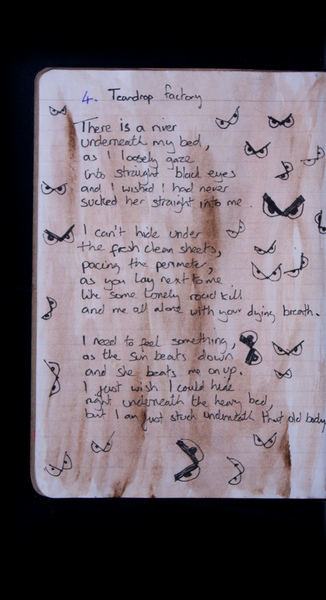 4. Teardrop factory
There is a river
underneath my bed,
as I loosely gaze
into straight black eyes
and I wished I had never
sucked her straight into me.
I can't hide under
the fresh clean sheets,
pacing the perimeter,
as you lay next to me
like some lonely road kill
and me all alone with your dying breath.
I need to feel something,
as the sun beats down
and she beats me on up.
I just wish I could hide
right underneath the heavy bed,
but I am just stuck underneath that old body